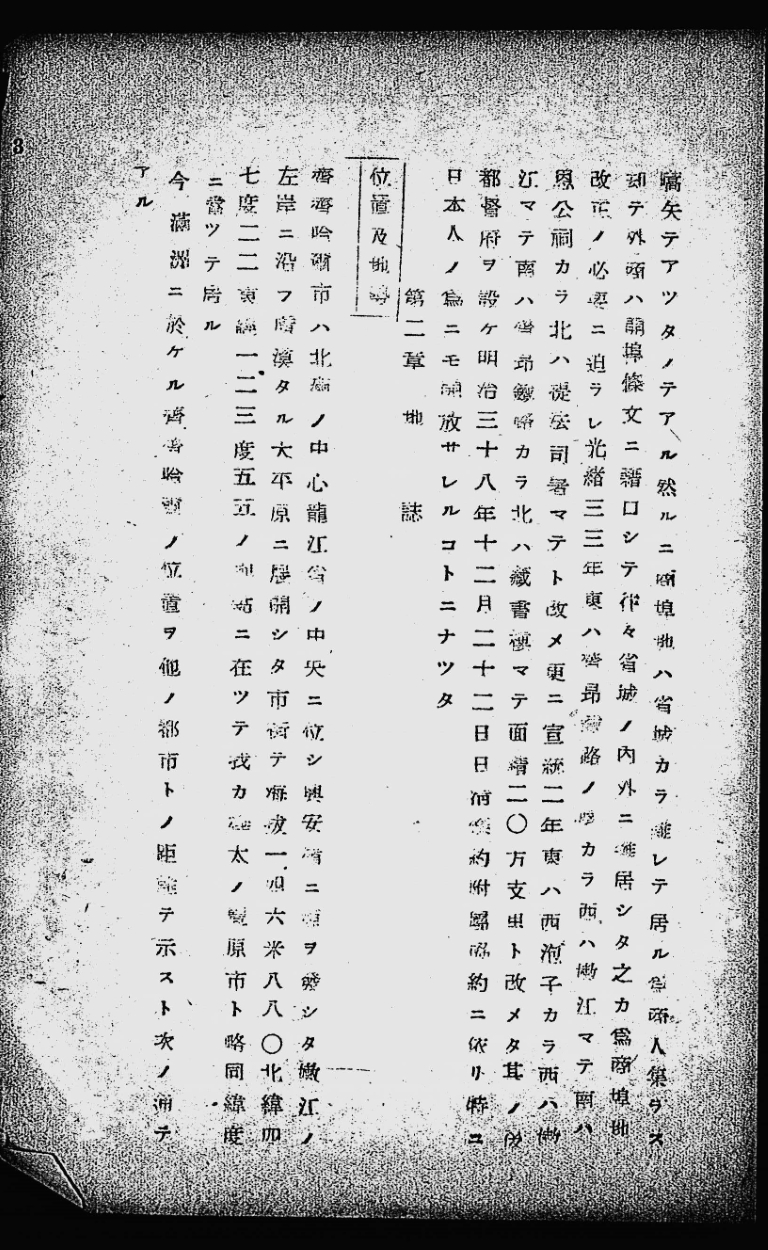 嚆矢テアツタノテアル然ルニ商埠地ハ省城カラ離レテ居ル為商人集ラス
却テ外商ハ開埠條文ニ藉口シテ往々省城ノ內外ニ雜居シタ之カ爲商埠地
改正ノ必要ニ迫ラレ光緒三三年東ハ齊昂鐵路ノカラ西ハ嫩江マテ南ハ
恩公祠カラ北ハ提法司署マテト改メ更ニ宣統二年東ハ西泡子カラ西ハ嫩
江マテ南ハ齊昂鐵路カラ北ハ藏書樓マテ面積二〇万支里ト改メタ其ノ後
都督府ヲ設ケ明治三十八年十二月二十二日日清條約附屬協約ニ依リ特ニ
日本人ノ爲ニモ開放サレルコトニナツタ
第二章 地 誌
位置及地勢
齊齊哈爾市ハ北滿ノ中心龍江省ノ中央ニ位シ興安嶺ニ源ヲ發シタ嫩江ノ
左岸ニ沿フ廣漠タル大平原ニ展開シタ市街テ海拔一四六米八八〇北緯四
七度二二東經一二三度五五ノ地點ニ在ツテ我カ樺太ノ豐原市ト略同緯度
ニ當ツテ居ル
今滿洲ニ於ケル齊齊哈爾ノ位置ヲ他ノ都市トノ距離テ示スト次ノ通テ
アル
3